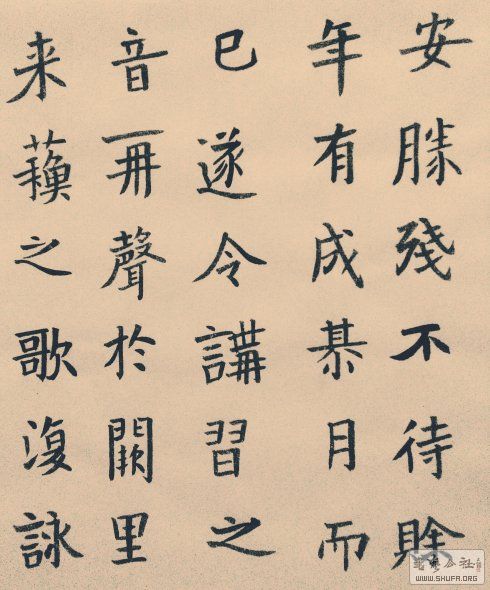 安勝殘不待賒
年有成朞月而
已遂令講習之
音再聲於闕里
来蘓之歌復詠
WWW.SHUFA.ORG